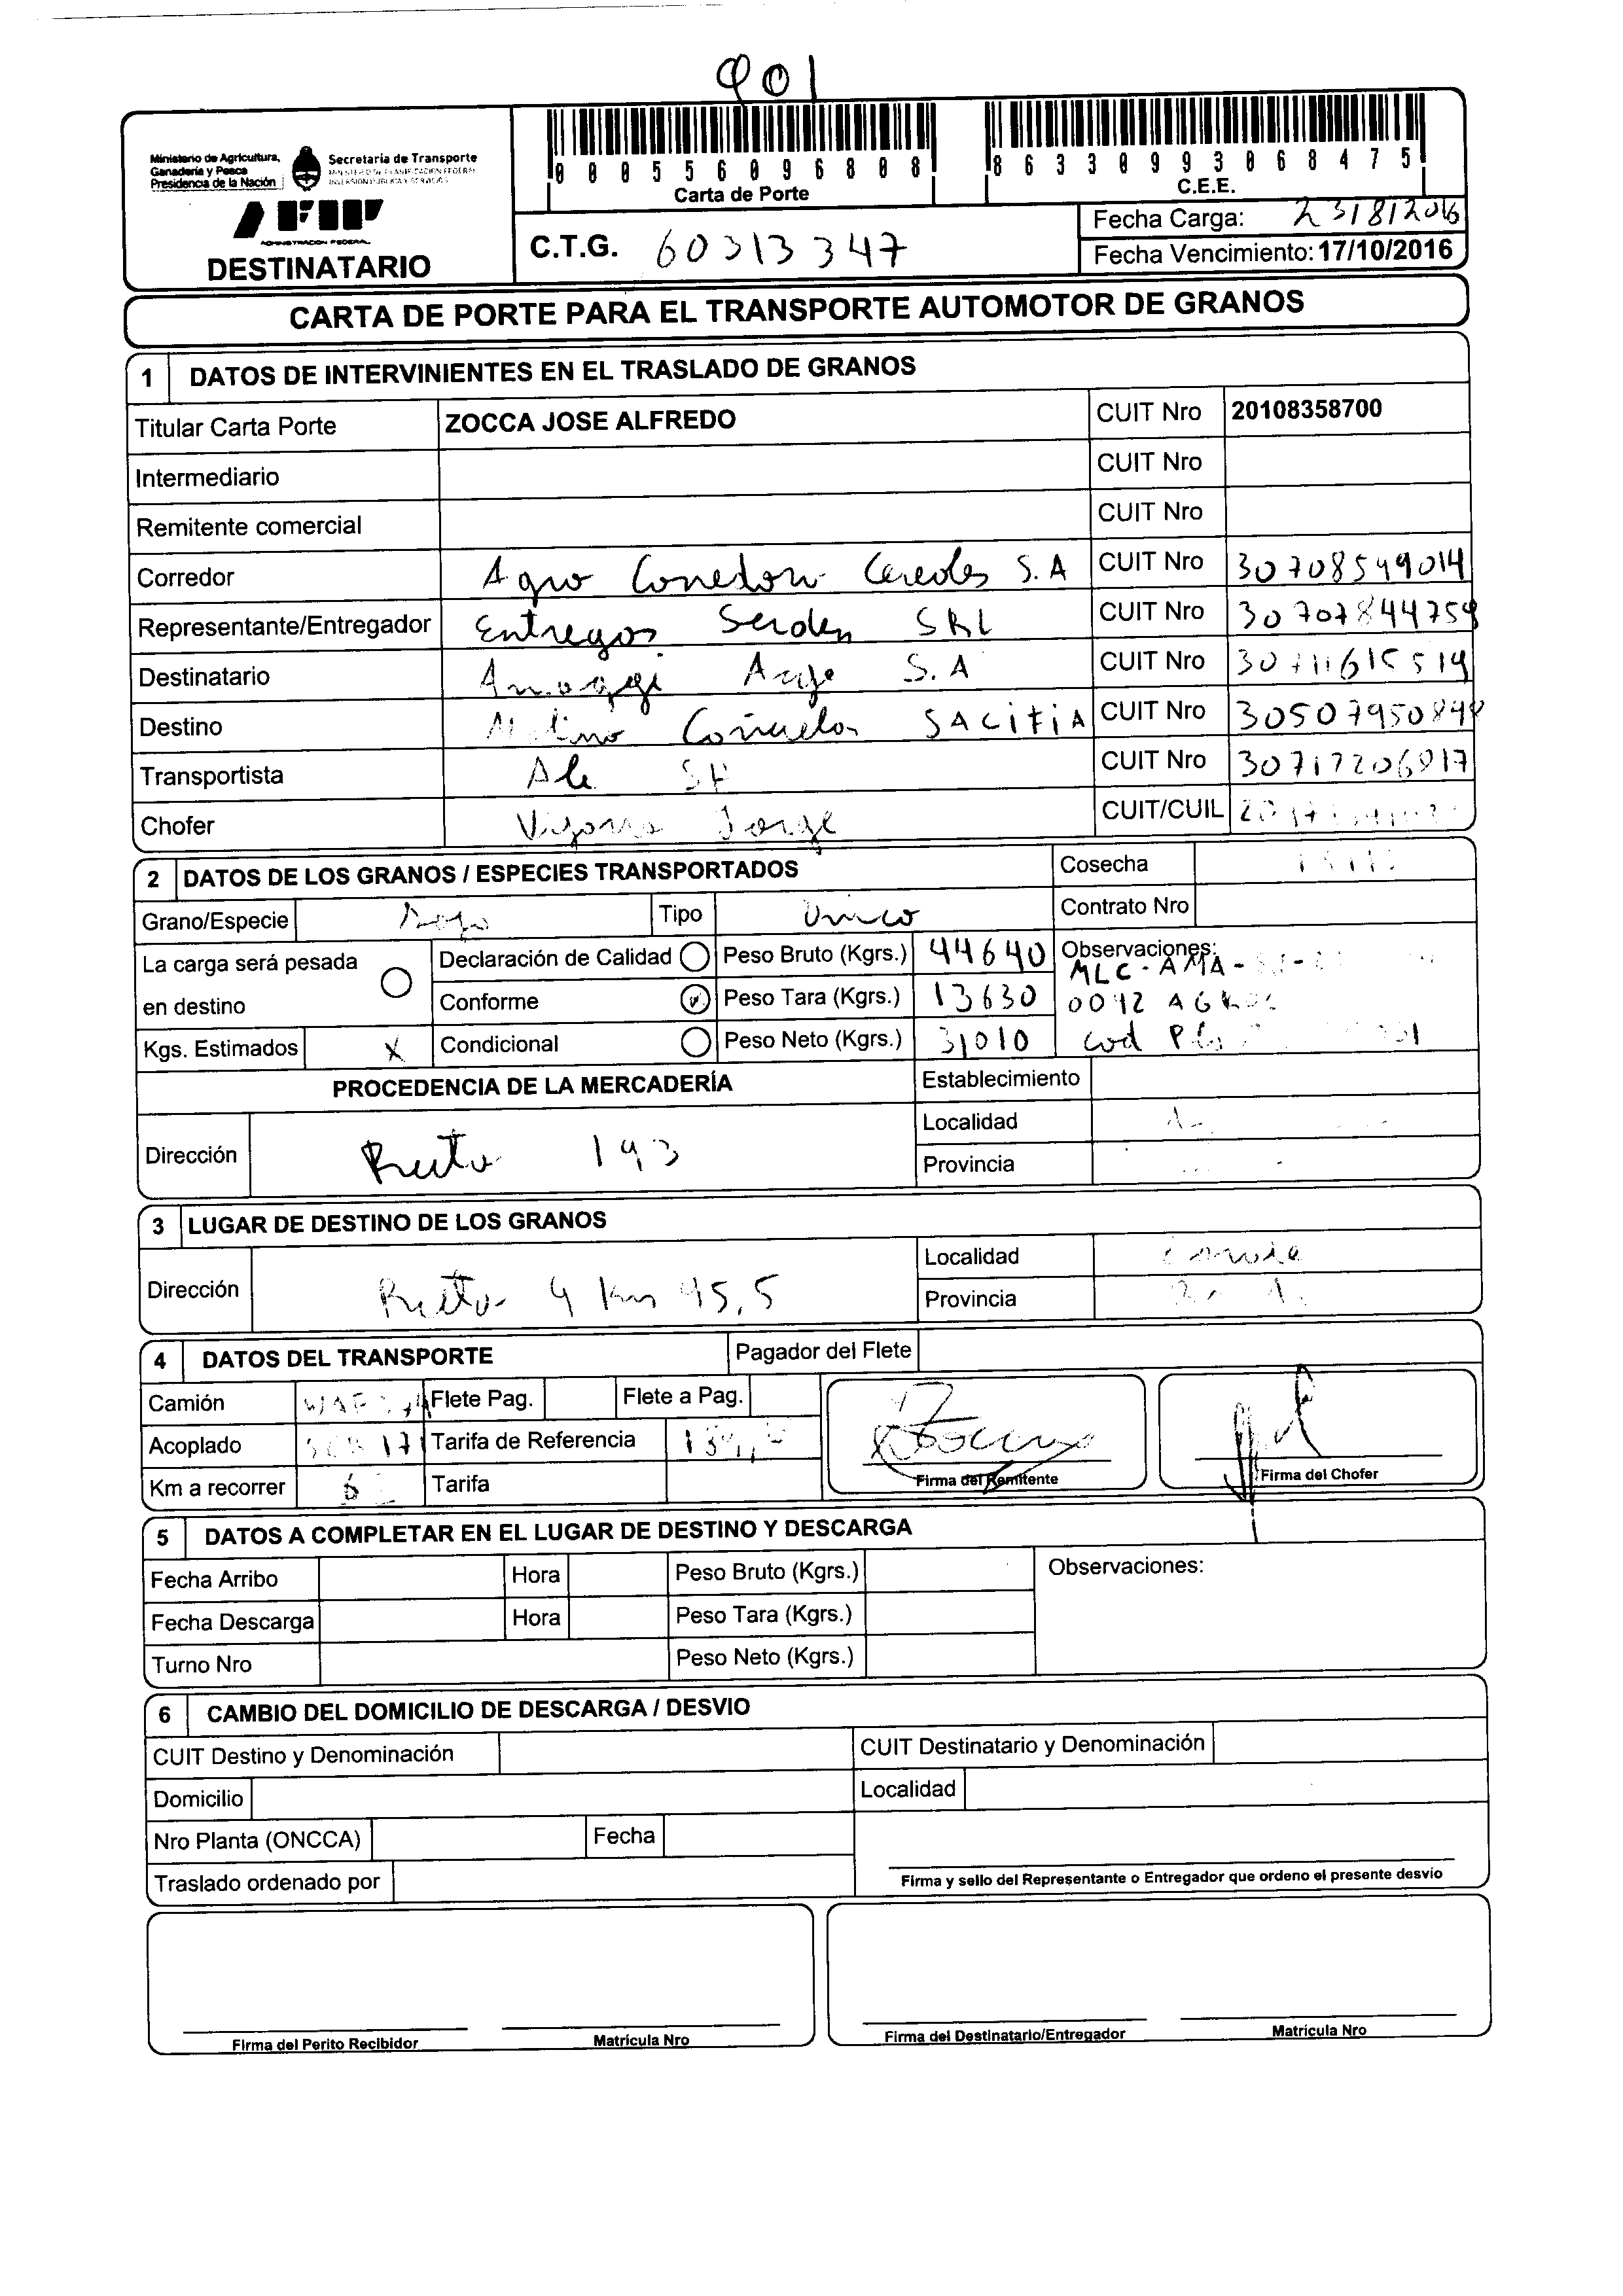 901
Ministerio de Agricultura,
Ganadería y Pesca
Presidencia de la Nación
Secretaria de Transporte
AFIP
ADMINISTRACION FEDERAL
DESTINATARIO
000556096808
Carta de Porte
86330993068475
C.E.E.
C.T.G. 60313347
Fecha Carga: 23/8/2016
Fecha Vencimiento: 17/10/2016
CARTA DE PORTE PARA EL TRANSPORTE AUTOMOTOR DE GRANOS
1 DATOS DE INTERVINIENTES EN EL TRASLADO DE GRANOS
Titular Carta Porte ZOCCA JOSE ALFREDO CUIT Nro 20108358700
Intermediario CUIT Nro
Remitente comercial CUIT Nro
Corredor Agro Corredora Cereales S.A CUIT Nro 30708549014
Representante/Entregador Entregas SRL CUIT Nro 30707844759
Destinatario S.A CUIT Nro 30711615519
Destino Molino Cañuelas SACIFIA CUIT Nro 30507950848
Transportista Ale SH CUIT Nro 30717206817
Chofer Jorge CUIT/CUIL
2 DATOS DE LOS GRANOS / ESPECIES TRANSPORTADOS Cosecha
Grano/Especie Soja Tipo Unico Contrato Nro
La carga será pesada en destino
Declaración de Calidad Peso Bruto (Kgrs.) 44640 Observaciones:
MLC-AMA-
Conforme Peso Tara (Kgrs.) 13630 0042
Kgs. Estimados X Condicional Peso Neto (Kgrs.) 31010 cod
PROCEDENCIA DE LA MERCADERÍA Establecimiento
Localidad
Dirección Ruta 193
Provincia
3 LUGAR DE DESTINO DE LOS GRANOS
Localidad
Dirección Ruta 9 km 95,5
Provincia
4 DATOS DEL TRANSPORTE Pagador del Flete
Camión Flete Pag. Flete a Pag.
Acoplado Tarifa de Referencia
Km a recorrer Tarifa
Firma del Remitente Firma del Chofer
5 DATOS A COMPLETAR EN EL LUGAR DE DESTINO Y DESCARGA
Fecha Arribo Hora Peso Bruto (Kgrs.) Observaciones:
Fecha Descarga Hora Peso Tara (Kgrs.)
Turno Nro Peso Neto (Kgrs.)
6 CAMBIO DEL DOMICILIO DE DESCARGA / DESVIO
CUIT Destino y Denominación CUIT Destinatario y Denominación
Domicilio Localidad
Nro Planta (ONCCA) Fecha
Traslado ordenado por
Firma y sello del Representante o Entregador que ordeno el presente desvío
Firma del Perito Recibidor Matrícula Nro Firma del Destinatario/Entregador Matrícula Nro